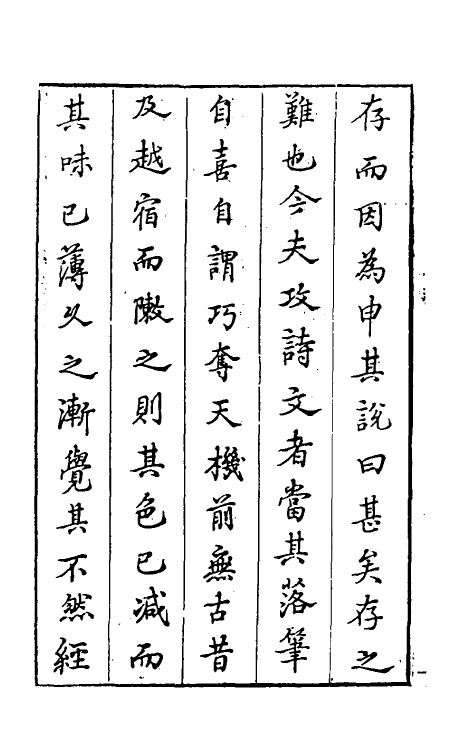 存而因為申其說曰甚矣存之
難也今夫攻詩文者當其落筆
自喜自謂巧奪天機前無古昔
及越宿而暾之則其色已減而
其味已薄久之漸覺其不然經